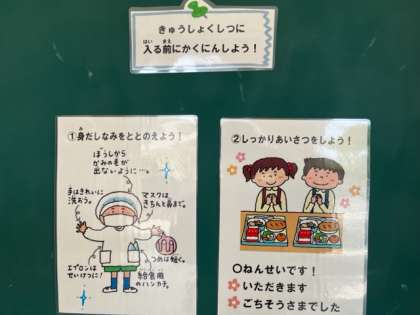 きゅうしょくしつに
入る前にかくにんしよう！
①身だしなみをととのえよう！
ぼうしから
かみの毛が
出ないように…。
手はきれいに
洗おう。
マスクは
きちんと鼻まで。
つめは短く。
エプロンは
せいけつに！
給食用
のハンカチ。
②しっかりあいさつをしよう！
〇ねんせいです！
いただきます
ごちそうさまでした